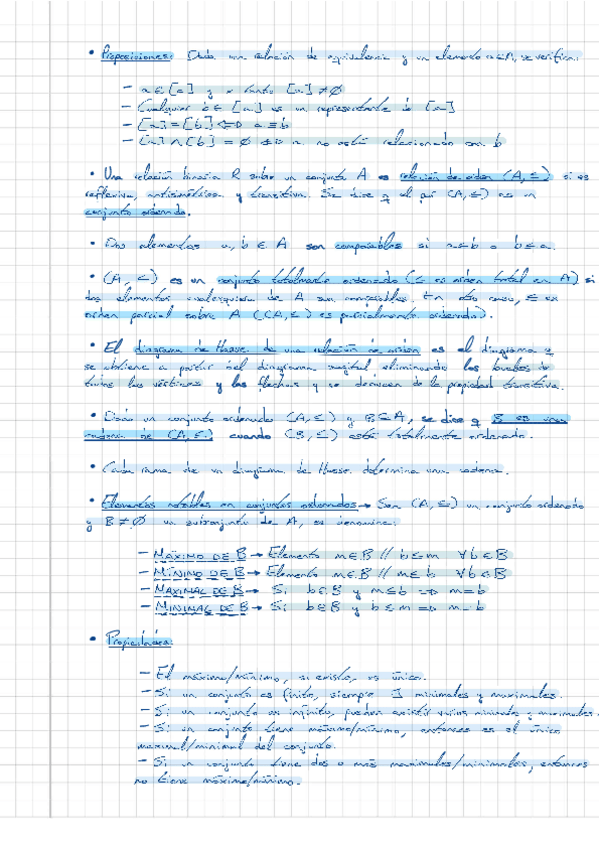 • Proposiciones: Dada una relación de equivalencia y un elemento a∈A, se verifica:
– a∈[a] y x tanto [a]≠∅
– Cualquier b∈[a] es un representante de [a]
– [a]=[b]⇔ a≡b
– [a]∩[b]=∅ ⇔ a no está relacionado con b
• Una relación binaria R sobre un conjunto A es relación de orden (A,≤) si es
reflexiva, antisimétrica y transitiva. Se dice q el par (A,≤) es un
conjunto ordenado.
• Dos elementos a,b∈A son comparables si a≤b o b≤a.
• (A,≤) es un conjunto totalmente ordenado (≤ es orden total en A) si
dos elementos cualesquiera de A son comparables. En otro caso, ≤ es
orden parcial sobre A ((A,≤) es parcialmente ordenado).
• El diagrama de Hasse de una relación de orden es el diagrama q
se obtiene a partir del diagrama sagital, eliminando los bucles de
todos los vértices y las flechas q se deducen de la propiedad transitiva.
• Dado un conjunto ordenado (A,≤) y B⊆A, se dice q B es una
cadena de (A,≤) cuando (B,≤) está totalmente ordenado.
• Cada rama de un diagrama de Hasse determina una cadena.
• Elementos notables en conjuntos ordenados→ Sea (A,≤) un conjunto ordenado
y B≠∅ un subconjunto de A, se denomina:
– MÁXIMO DE B → Elemento m∈B // b≤m ∀b∈B
– MÍNIMO DE B → Elemento m∈B // m≤b ∀b∈B
– MAXIMAL DE B → Si b∈B y m≤b ⇒ m=b
– MINIMAL DE B → Si b∈B y b≤m ⇒ m=b
• Propiedades:
– El máximo/mínimo, si existe, es único.
– Si un conjunto es finito, siempre ∃ minimales y maximales.
– Si un conjunto es infinito, pueden existir varios minimales y maximales.
– Si un conjunto tiene máximo/mínimo, entonces es el único
maximal/minimal del conjunto.
– Si un conjunto tiene dos o más maximales/minimales, entonces
no tiene máximo/mínimo.